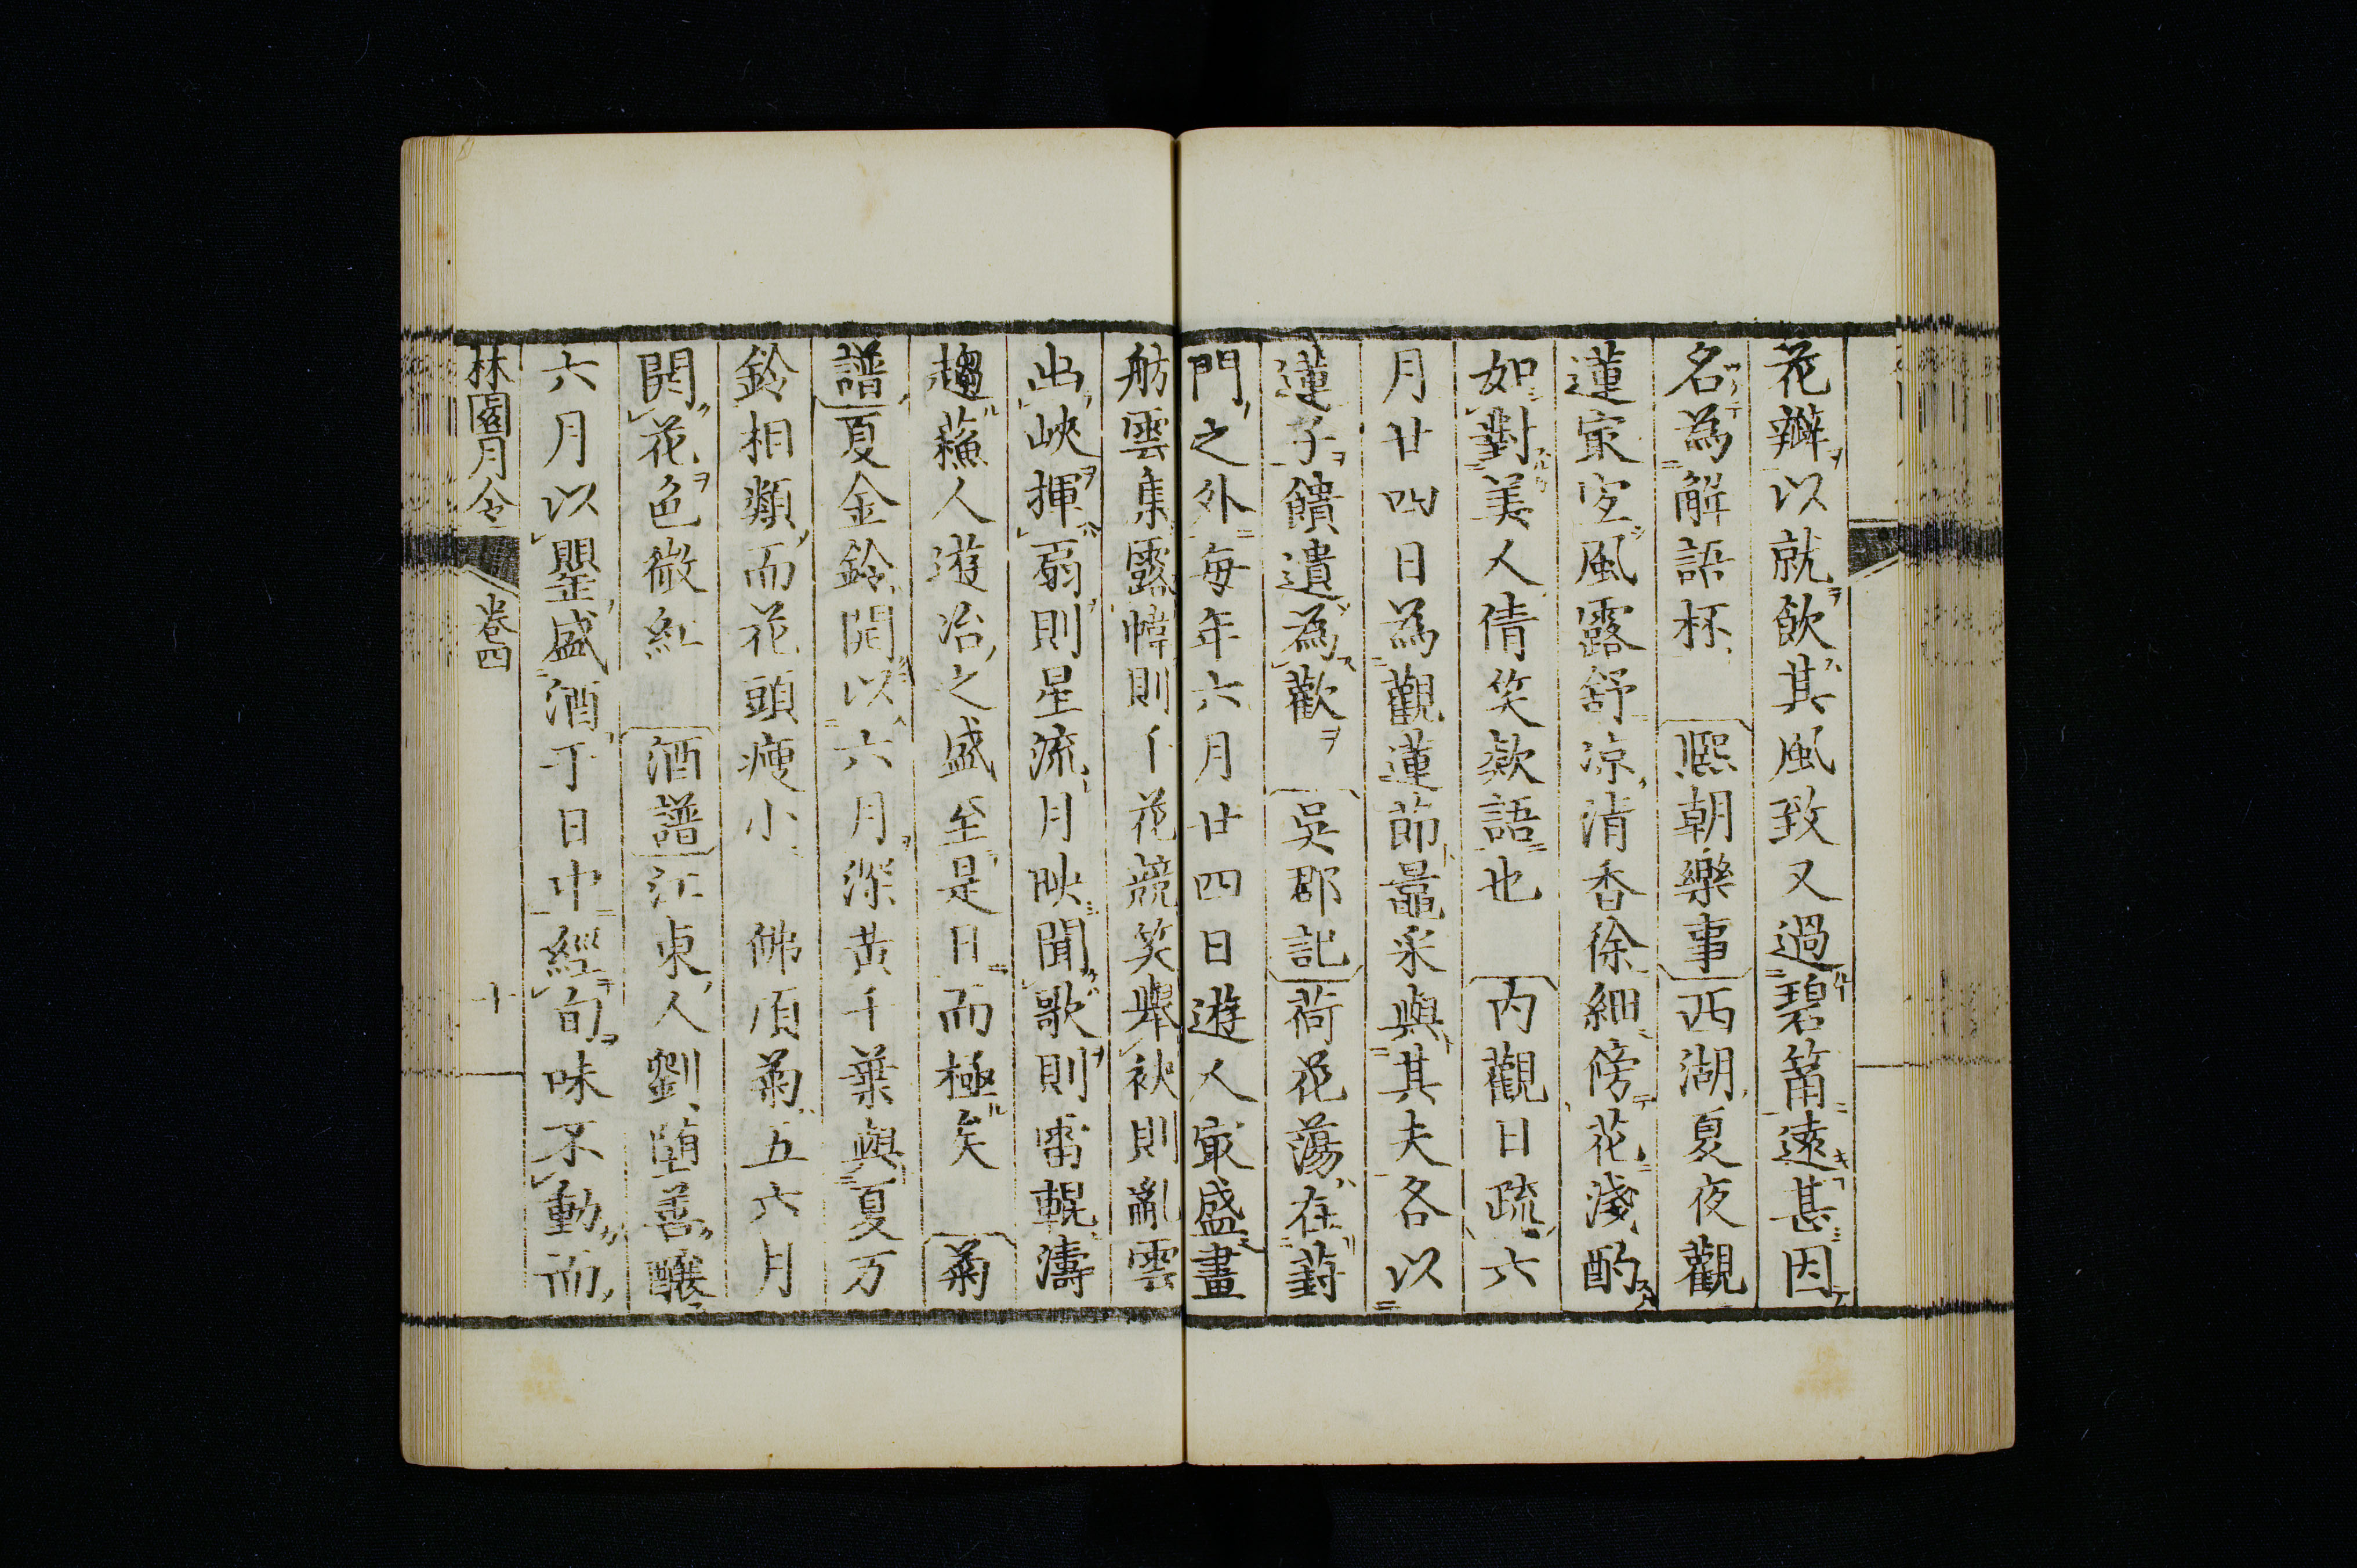 花瓣以就飲其風致又過碧筩遠甚因
名為解語杯　熈朝樂事西湖夏夜觀
蓮㝡宜風露舒涼清香徐細傍花淺酌
如對美人倩笑欵語也　内觀日疏六
月廿四日為觀蓮節鼂采與其夫各以
蓮子饋遺為歡　吳郡記荷花蕩在葑
門之外每年六月廿四日遊人㝡盛畫
舫雲集露幃則千花競笑舉袂則亂雲
出峽揮扇則星流月映聞歌則雷輥濤
趨蘇人遊冶之盛至是日而極矣　菊
譜夏金鈴開以六月深黄千葉與夏万
鈴相類而花頭瘦小　佛頂菊五六月
開花色微紅　酒譜江東人劉墮善釀
六月以甖盛酒于日中經旬味不動而
林園月令　卷四　十